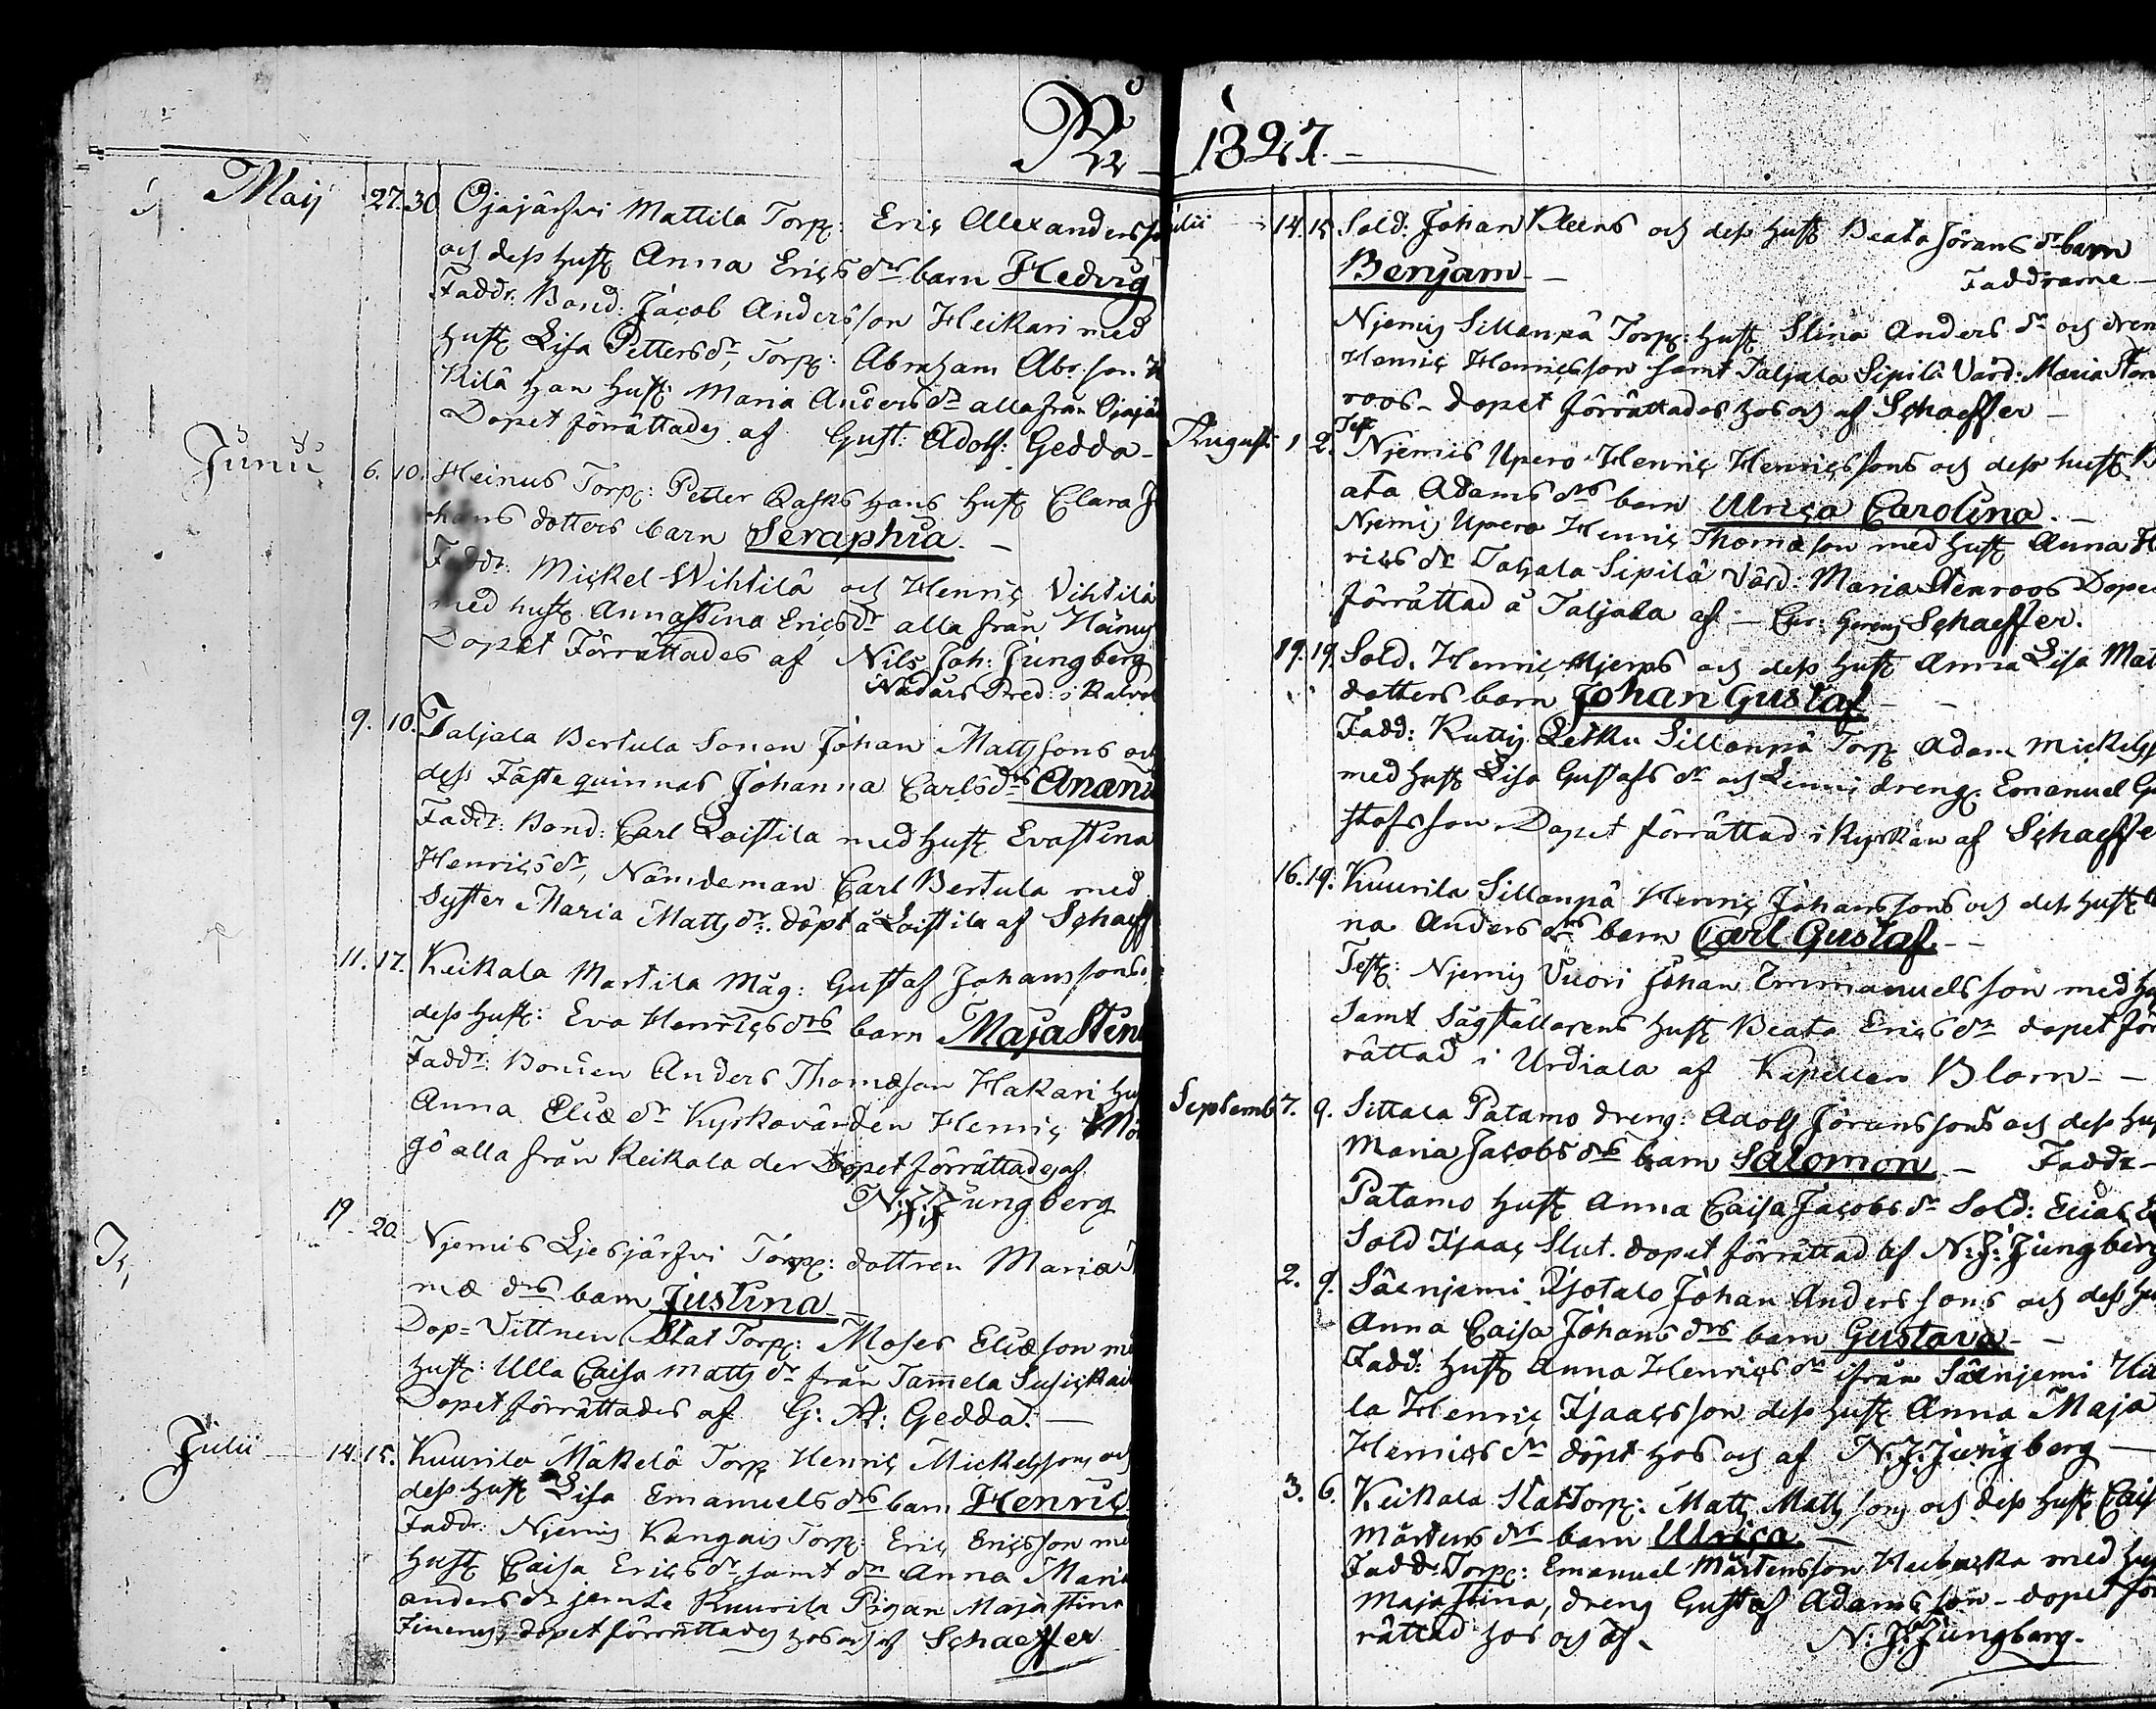 1827.
Maij 27. 30. Ojajärfvi Mattila Torp: Eric Alexanders
och dess hust Anna Erics dr barn Hedvig
Faddr. Bond: Jacob Andersson Heikari med
hust Lisa Petters dr, Torp: Abraham Abr: son
Kilä han hust: Maria Anders dr alla från Ojajär
Dopet förrättades af Gust: Adolf: Gedda -
Junii 6. 10. Heinus Torp: Petter Rasks hans hust Clara J
hans dotters barn Seraphia. -
Faddr. Mickel Wihtilä och Henric Vihtilä
med hust Annastina Erics dr alla från
Dopet Förrättades af Nils Joh: Jungberg
Nådårs Pred: i Kalvol
9. 10. Taljala Bertula Sonen Johan Mattssons och
dess Fästequinnas Johanna Carls drs
Faddr: Bond: Carl Loistila med hust Evastina
Henrics dr, Nämdeman Carl Bertula med
Syster Maria Matts dr. döpt å Loistila af Schaeff
11. 17. Keikala Martila Måg: Gustaf Johanssons
dess hust: Eva Henrics drs barn Maja Stin
Faddr: Bonden Anders Thomæson Hakari hu
Anna Eliæ dr Kyrkovärden Henric
gö alla från Keikala der Dopet förrättades af
N: J: Jungberg
19 20. Njemis Ljesjärfvi Torp: dottren Maria T
mæ drs barn Justina -
Dop=Vittnen Stat Torp: Moses Eliæson me
hust: Ulla Caisa Matts dr från Tamela
Dopet förrättades af G: A: Gedda. -
Julii 14. 15. Kuurila Mäkelä Torp Henric Mickelssons och
dess hust Lisa Emanuels drs barn Henric
Faddr. Njemis Kangais Torp: Eric Ericsson me
hust Caisa Erics dr samt dr Anna Maria
anders dr jemte Kuurila Pigan Majastina
dopet förrättades hos och af Schaeffer
ulii 14. 15. Sold: Johan Kleens och dess hust Beata Jörans dr barn
Benjam - Faddrarne -
Njemis Sillanpä Torp: hust Stina Anders dr och dren
Henric Henricsson samt Taljala Sipilä Värd: Maria Sten
roos - dopet förrättades hos och af Schaeffer -
Augusti 1 2. Njemis Upero Henric Henricssons och dess hust B
ata Adams drs barn Ulrica Carolina. -
Njemis Upero Henric Thomæson med hust Anna He
rics dr Taljala Sipilä Värd: Maria Stenroos Dopet
förrättad å Taljala af - Schaeffer.
19. 19. Sold. Henric Hjerps och dess hust Anna Lisa Mat
dotters barn Johan Gustaf -
Fadd: Kuttis Letku Sillanpä Torp Adam Mickels
med hust Lisa Gustafs dr och Lenni dreng: Emanuel Gu
stafsson. Dopet förrättad i Kyrkan af Schaeffe
16. 19. Kuurila Sillanpä Henric Johanssons och dess hust
na Anders drs barn Carl Gustaf -
Test: Njemis Vuori Johan Emmanuelsson med hu
samt Sågställarens hust Beata Erics dr dopet för
rättad i Urdiala af Blom - -
Septemb 7. 9. Sittala Patamo dreng: Adolf Jöranssons och dess hu
Maria Jacobs drs barn Salomon - Faddr -
Patamo hust Anna Caisa Jacobs dr Sold: Elias
Sold Isaac Slut. dopet förrättad af N: J: Jungberg
2. 9. Säenjemi Johan Anderssons och dess hu
Anna Caisa Johans drs barn Gustava -
Fadd: hust Anna Henrics dr ifrån Säenjemi
la Henric Isaacsson dess hust Anna Maja
Henrics dr döpt hos och af N: J: Jungberg -
3. 6. Keikala StatTorp: Matts Mattssons och dess hust Cais
Mårtens drs barn Ulrica. -
Fadd: Torp: Emanuel Mårtensson med hu
Majastina, dreng Gustaf Adamsson - dopet för
rättad hos och af. N: J: Jungberg.